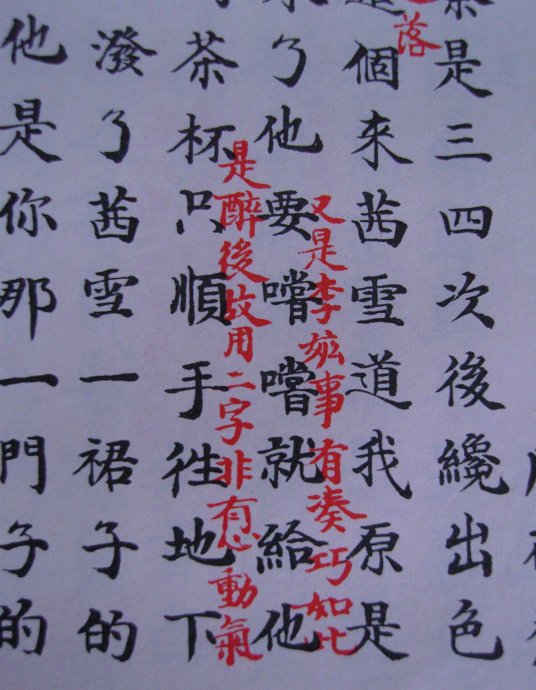 是三四次後纔出色
落
個來茜雪道我原是
又是李事有湊巧如此
了他要嚐嚐就給他
是醉後故用二字非有心動氣
茶杯只順手徃地下
潑了茜雪一裙子的
他是你那一門子的